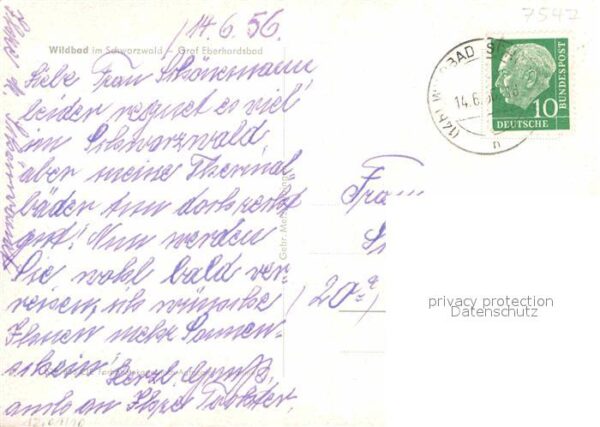 14.6.56.
Wildbad im Schwarzwald – Graf Eberhardsbad
Liebe Frau Schönemann,
leider regnet es viel
im Schwarzwald,
aber meine Thermal
bäder tun doch recht
gut! Nun werden
Sie wohl bald ver-
reisen, ich wünsche
Ihnen mehr Sonnen-
schein! Herzl. Gruß,
auch an Ihre Tochter,
Ihre
Gebr. Metz
Frau
(20a)
7542
14.6.
(14b) WILDBAD
n
10
DEUTSCHE
BUNDESPOST
privacy protection
Datenschutz